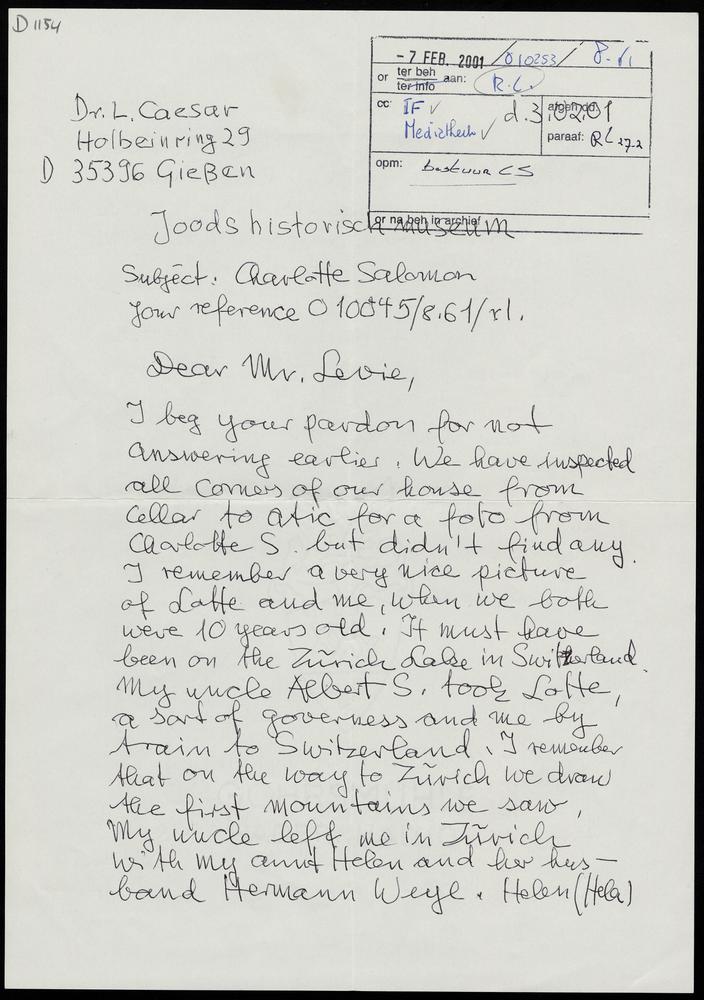 D 1154
- 7 FEB. 2001 /010253/ 8.61
or ter beh aan: R.L.
ter info
cc: IF √ d. 3.02.01
Mediatheek √ afgehnd.
paraaf: RL 27.2
opm: bestuur CS
or na beh in archief
Dr. L. Caesar
Holbeinring 29
D 35396 Gießen
Joods historisch museum
Subject: Charlotte Salomon
Your reference O 10045/8.61/rl.
Dear Mr. Levie,
I beg your pardon for not
answering earlier. We have inspected
all corners of our house from
cellar to atic for a foto from
Charlotte S. but didn't find any.
I remember a very nice picture
of Lotte and me, when we both
were 10 years old. It must have
been on the Zürich Lake in Switzerland.
My uncle Albert S. took Lotte,
a sort of governess and me by
train to Switzerland. I remember
that on the way to Zürich we draw
the first mountains we saw.
My uncle left me in Zürich
with my aunt Helen and her hus-
band Hermann Weyl. Helen (Hela)